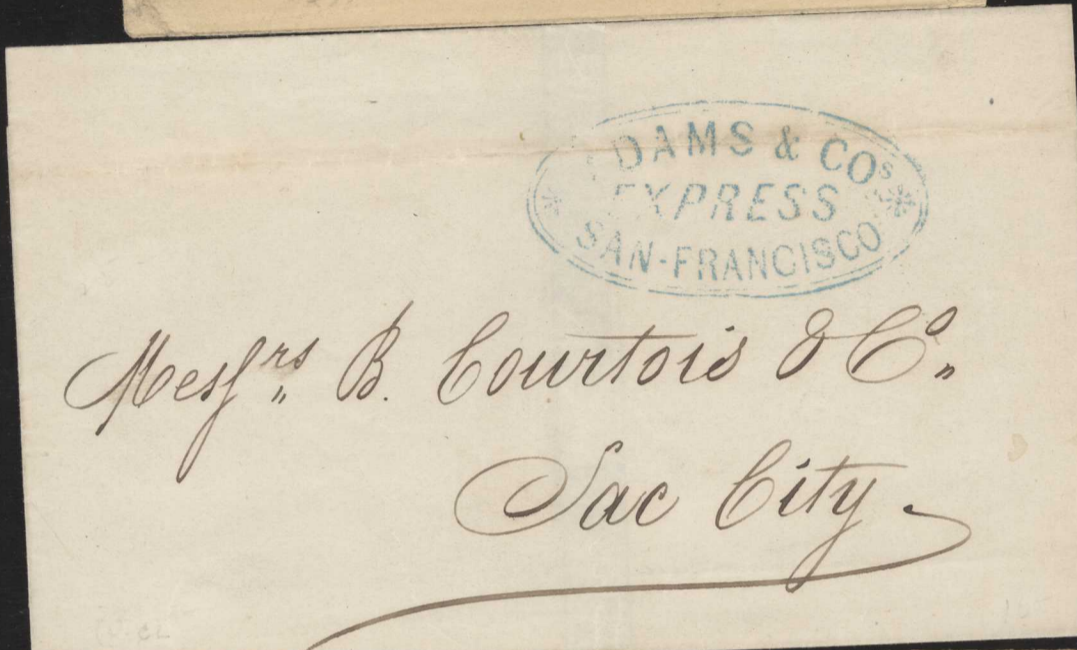 ADAMS & COs
EXPRESS
SAN-FRANCISCO
Messrs B. Courtois & Co.
Sac City